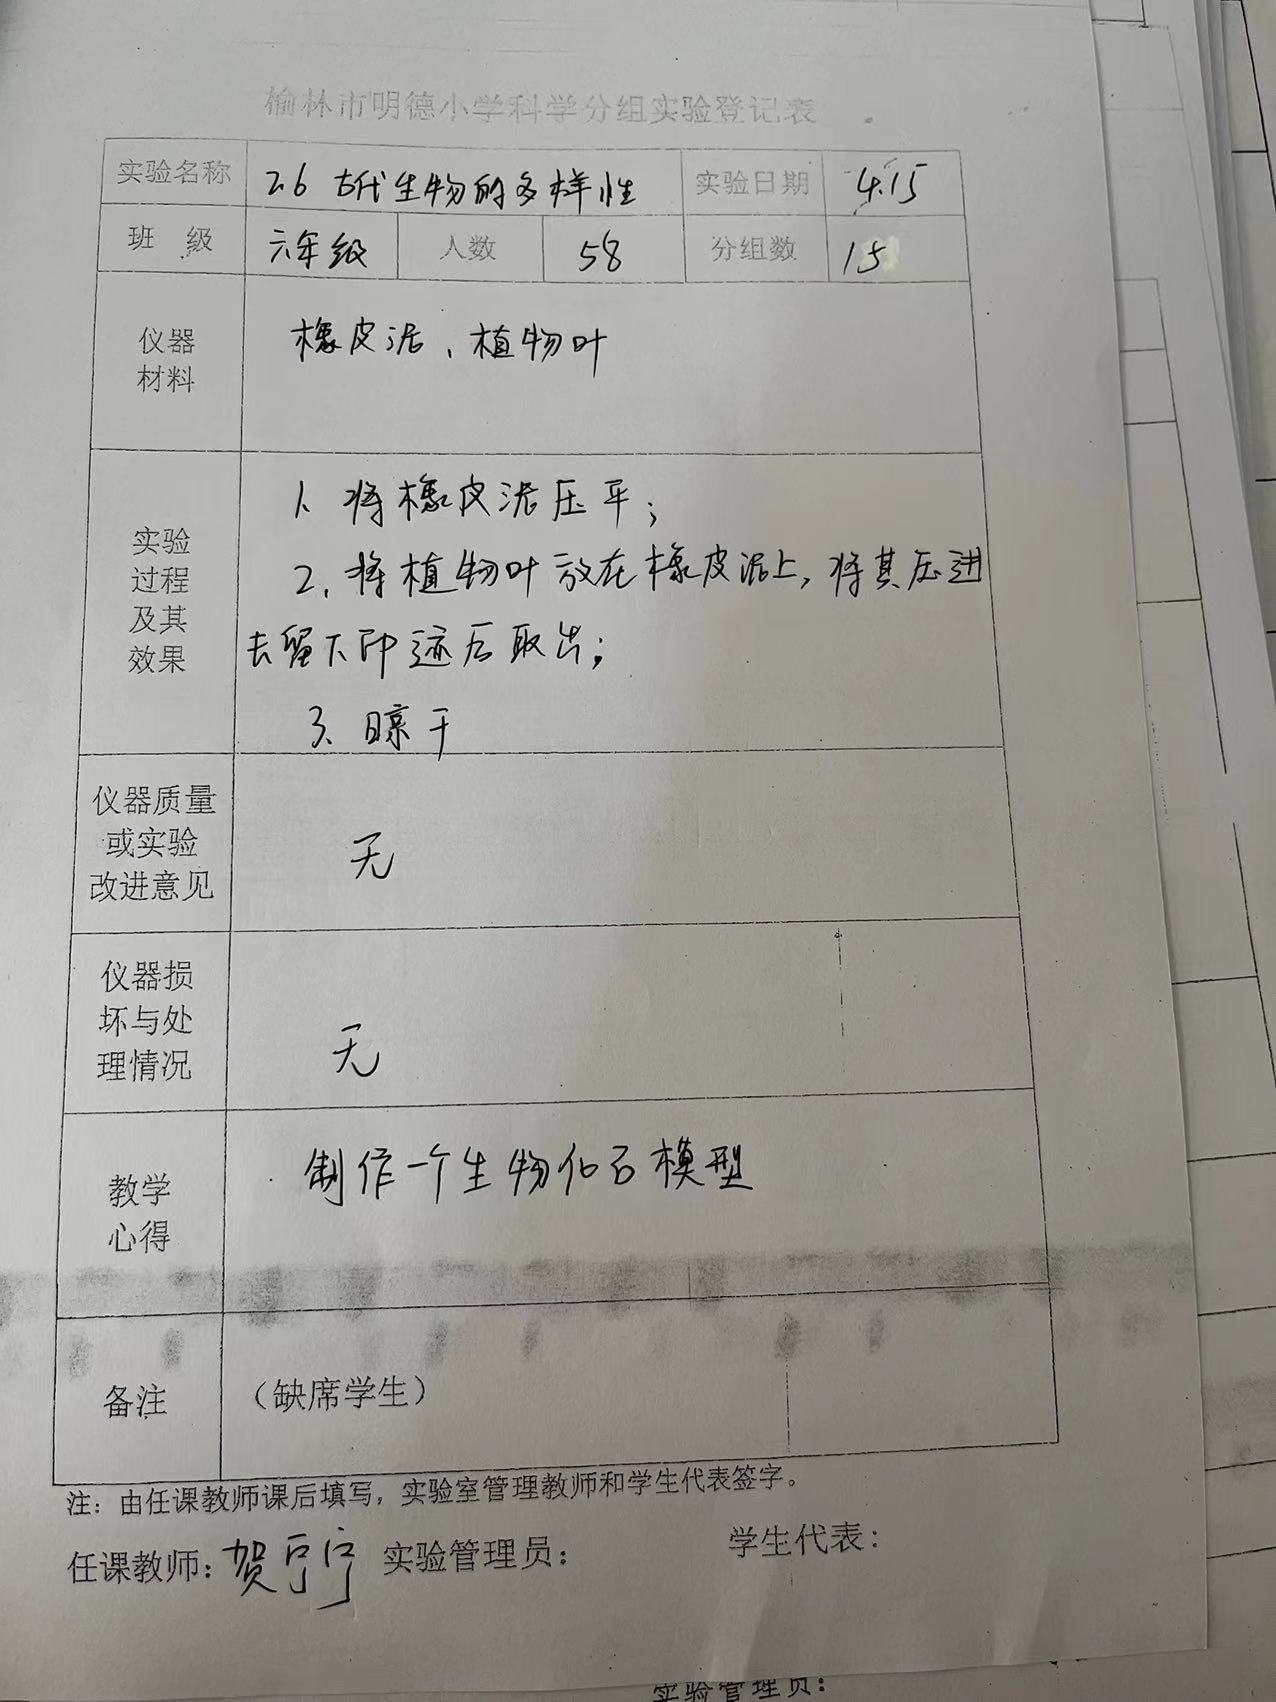 榆林市明德小学科学分组实验登记表
实验名称 2.6 古代生物的多样性 实验日期 4.15
班 级 六年级 人数 58 分组数 15
仪器
材料
橡皮泥、植物叶
实验
过程
及其
效果
1、将橡皮泥压平；
2、将植物叶放在橡皮泥上，将其压进
去留下印迹后取出；
3、晾干
仪器质量
或实验
改进意见
无
仪器损
坏与处
理情况
无
教学
心得
制作一个生物化石模型
备注
（缺席学生）
注：由任课教师课后填写，实验室管理教师和学生代表签字。
任课教师：贺宁宁 实验管理员： 学生代表：
实验管理员：